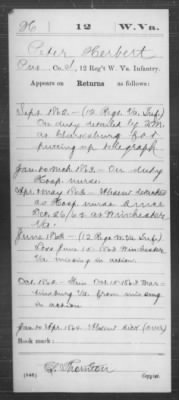 H | 12 | W.Va.
Peter Herbert
Co. I, 12 Reg't W. Va. Infantry.
Appears on Returns as follows:
Sept 1862 - (12 Regt. Va. Inf.)
On duty detailed by
as Clarksburg
putting up telegraph
Jan to Mch 1863. On duty
Hosp. nurse.
Apr. & May 1863 - Absent detached
as Hosp. nurse since
Dec. 26/62 at Winchester
Va.
June 1863 - (12 Regt. W.Va. Inf.)
Loss June 15 1863 Winchester
Va. missing in action.
Oct. 1863 - Oct. 10 1863 Mar-
tinsburg Va. from missing
in action
Jan. to Apr. 1864. Absent sick (over)
Book mark:
Thornton
(546)